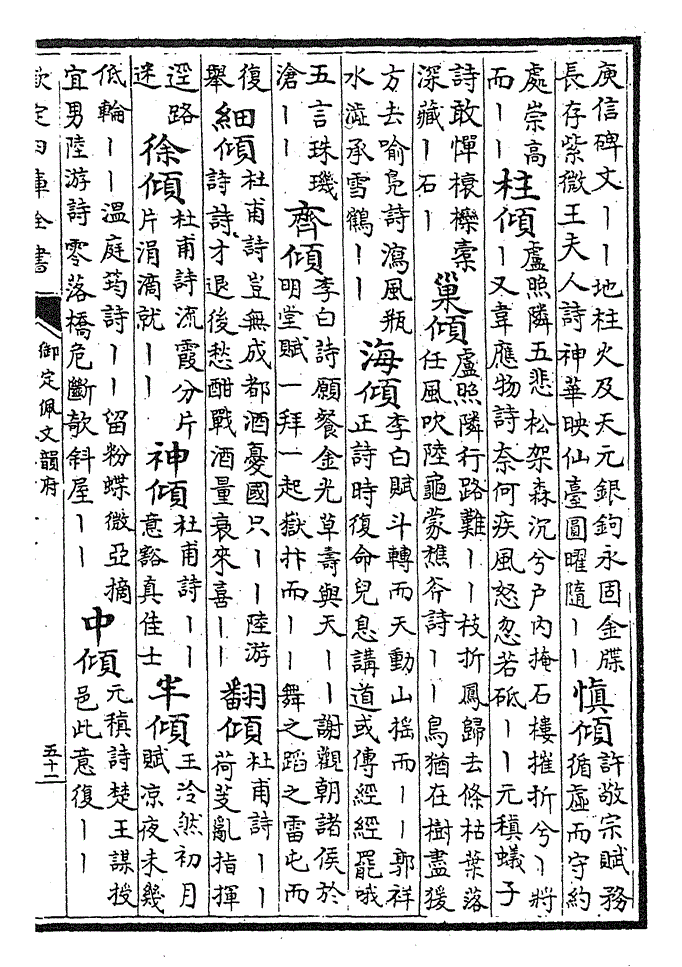 庾信碑文丨丨地柱火及天元銀鉤永固金牒
長存紫微王夫人詩神華映仙臺圓曜隨丨丨
慎傾
許敬宗賦務
循虛而守約
處崇高
而丨丨
柱傾
盧照隣五悲松架森沉兮户內掩石樓摧折兮丨將
丨又韋應物詩奈何疾風怒忽若砥丨丨元稹蟻子
詩敢憚榱櫟蠹
深藏丨石丨
巢傾
盧照隣行路難丨丨枝折鳳歸去條枯葉落
任風吹陸龜蒙樵斧詩丨丨鳥猶在樹盡猨
方去喻鳧詩瀉風瓶
水澁承雪鶴丨丨
海傾
李白賦斗轉而天動山摇而丨丨郭祥
正詩時復命兒息講道或傳經經罷哦
五言珠璣
滄丨丨
齊傾
李白詩願餐金光草壽與天丨丨謝觀朝諸侯於
明堂賦一拜一起嶽抃而丨丨舞之蹈之雷屯而
復
舉
細傾
杜甫詩豈無成都酒憂國只丨丨陸游
詩詩才退後愁酣戰酒量衰來喜丨丨
翻傾
杜甫詩丨丨
荷芰亂指揮
逕路
迷
徐傾
杜甫詩流霞分片
片涓滴就丨丨
神傾
杜甫詩丨丨
意豁真佳士
半傾
王泠然初月
賦凉夜未幾
低輪丨丨溫庭筠詩丨丨留粉蝶微亞摘
宜男陸游詩零落橋危斷欹斜屋丨丨
中傾
元稹詩楚王謀授
邑此意復丨丨
欽定四庫全書
御定佩文韻府
五十二